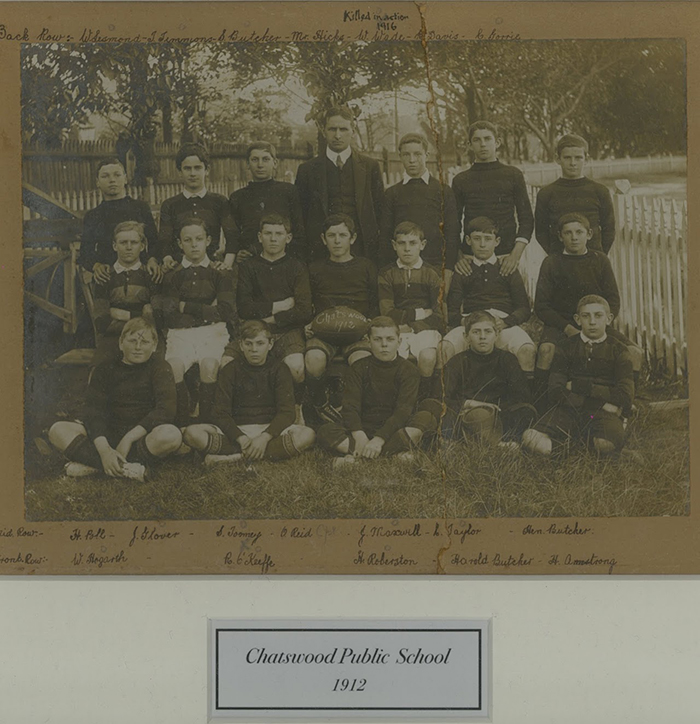 Killed in action
1916
Back Row:- W. Desmond - J. Timmons - S. Butcher - Mr. Hicks - W. Wade - Davis - C. Gorrie
Chats
1912
Mid. Row:- H. Poll - J. Glover - S. Toomey - O. Reid - J. Maxwell - L. Taylor - Ken. Butcher.
Front Row:- W. Hogarth - R. O'Keeffe H. Roberston - Harold Butcher - H. Armstrong
Chatswood Public School
1912